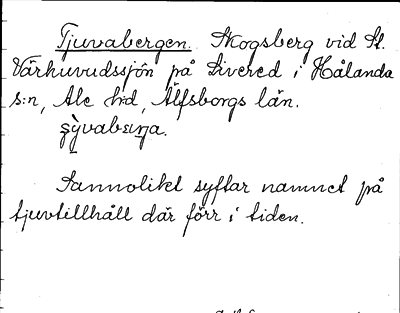 Tjuvabergen. Skogsberg vid St.
Värhuvudssjön på Livered i Hålanda
s:n, Ale hd, Älfsborgs län.
Sannolikt syftar namnet på
tjuvtillhåll där förr i tiden.